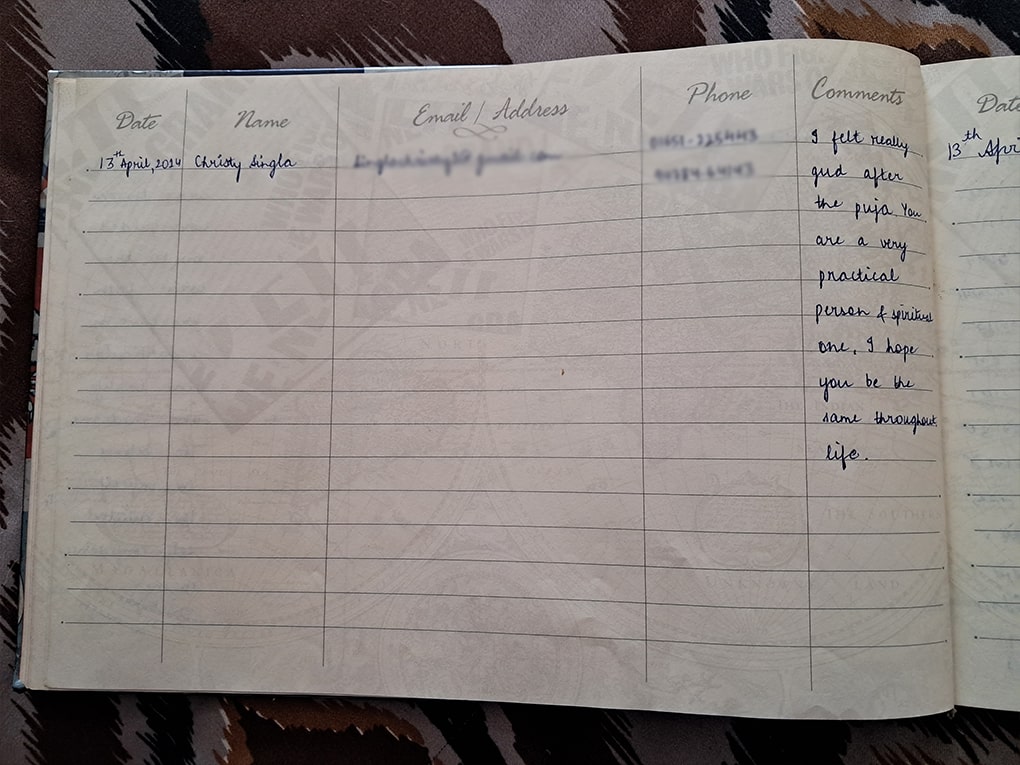 Date Name Email / Address Phone Comments
13th April, 2014 Christy Singla
I felt really
gud after
the puja You
are a very
practical
person & spiritual
one. I hope
you be the
same throughout
life.
Date
13th Apri